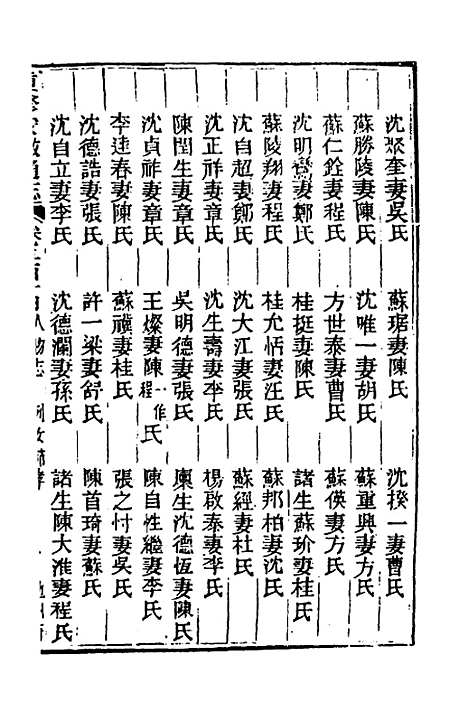 沈聚奎妻吳氏　蘇琚妻陳氏　沈揆一妻曹氏
蘇勝陵妻陳氏　沈唯一妻胡氏　蘇重興妻方氏
蘇仁銓妻程氏　方世泰妻曹氏　蘇偀妻方氏
沈明鸞妻鄭氏　桂挺妻陳氏　諸生蘇玠妻桂氏
蘇陵翔妻程氏　桂允恓妻汪氏　蘇邦柏妻沈氏
沈自超妻鄭氏　沈大江妻張氏　蘇經妻杜氏
沈正祥妻章氏　沈生壽妻李氏　楊啟泰妻李氏
陳閏生妻章氏　吳明德妻張氏　廩生沈德恆妻陳氏
沈貞祥妻章氏　王燦妻陳一作程氏　陳自性繼妻李氏
李逵春妻陳氏　蘇瀵妻桂氏　張之忖妻吳氏
沈德誥妻張氏　許一梁妻舒氏　陳首琦妻蘇氏
沈自立妻李氏　沈德瀾妻孫氏　諸生陳大淮妻程氏